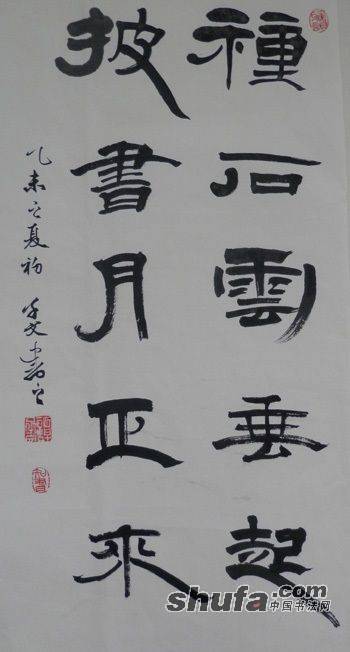 種石雲垂起
披書月正來
乙未之夏初
shufa.com
中国书法网